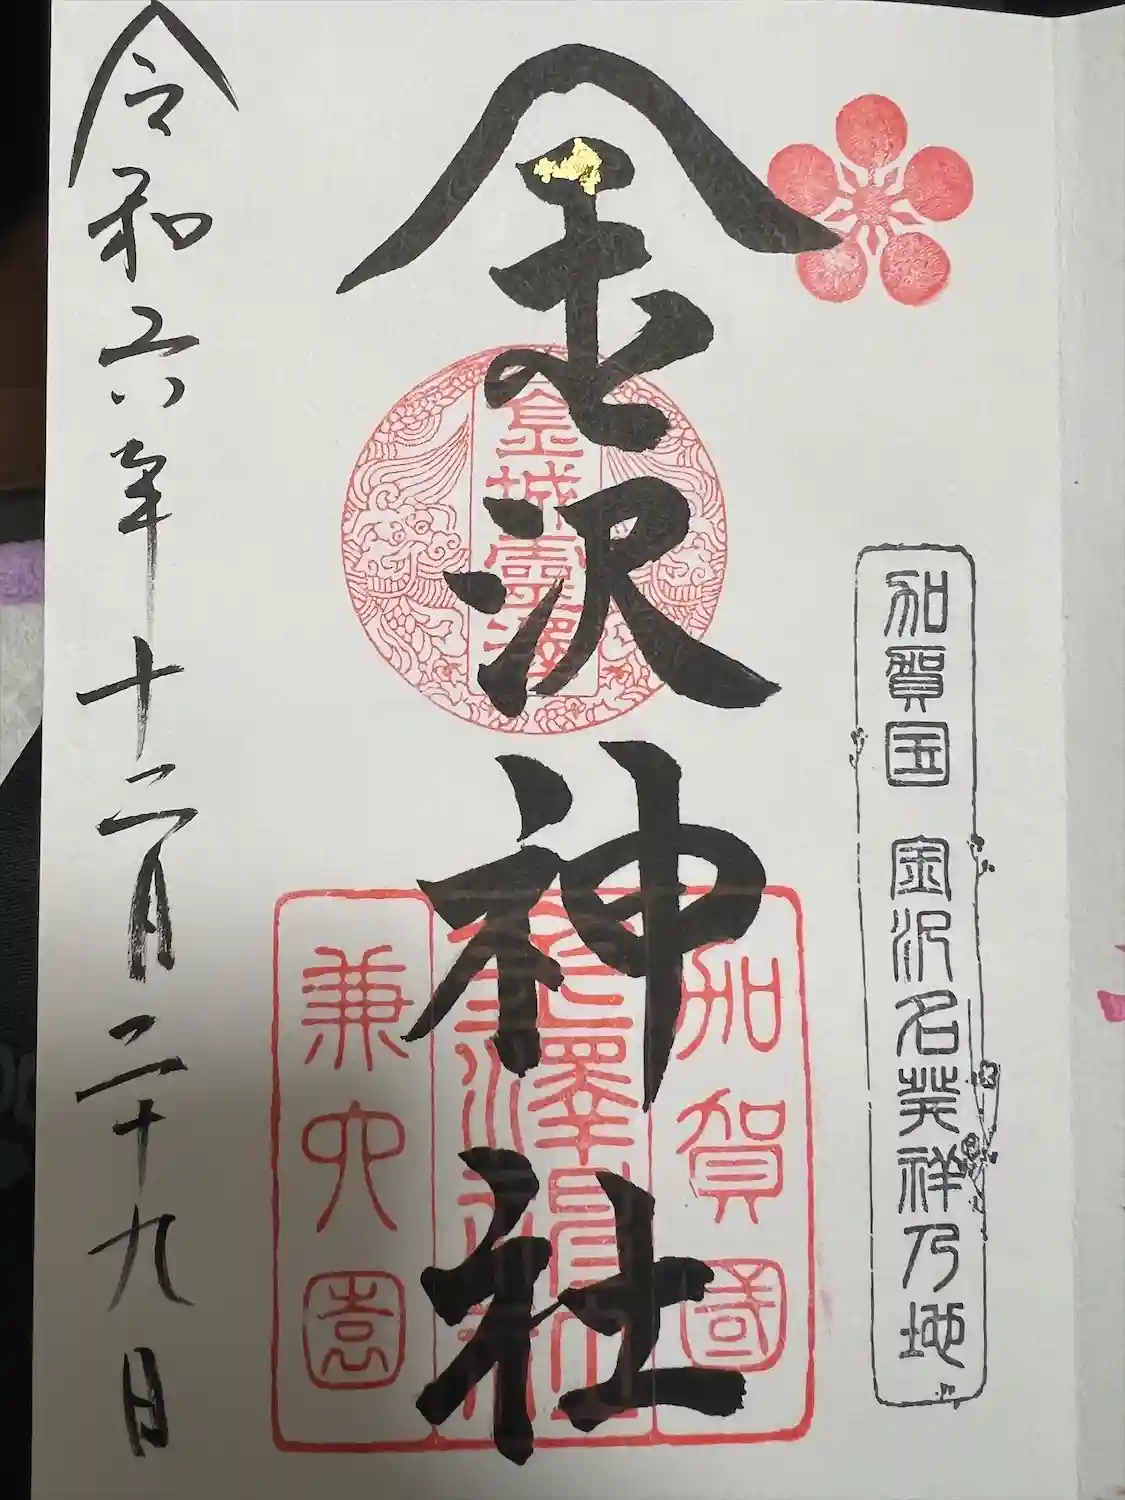 加賀国 金沢名発祥乃地
金沢神社
金城霊澤
加賀國
兼六園
令和六年十二月二十九日